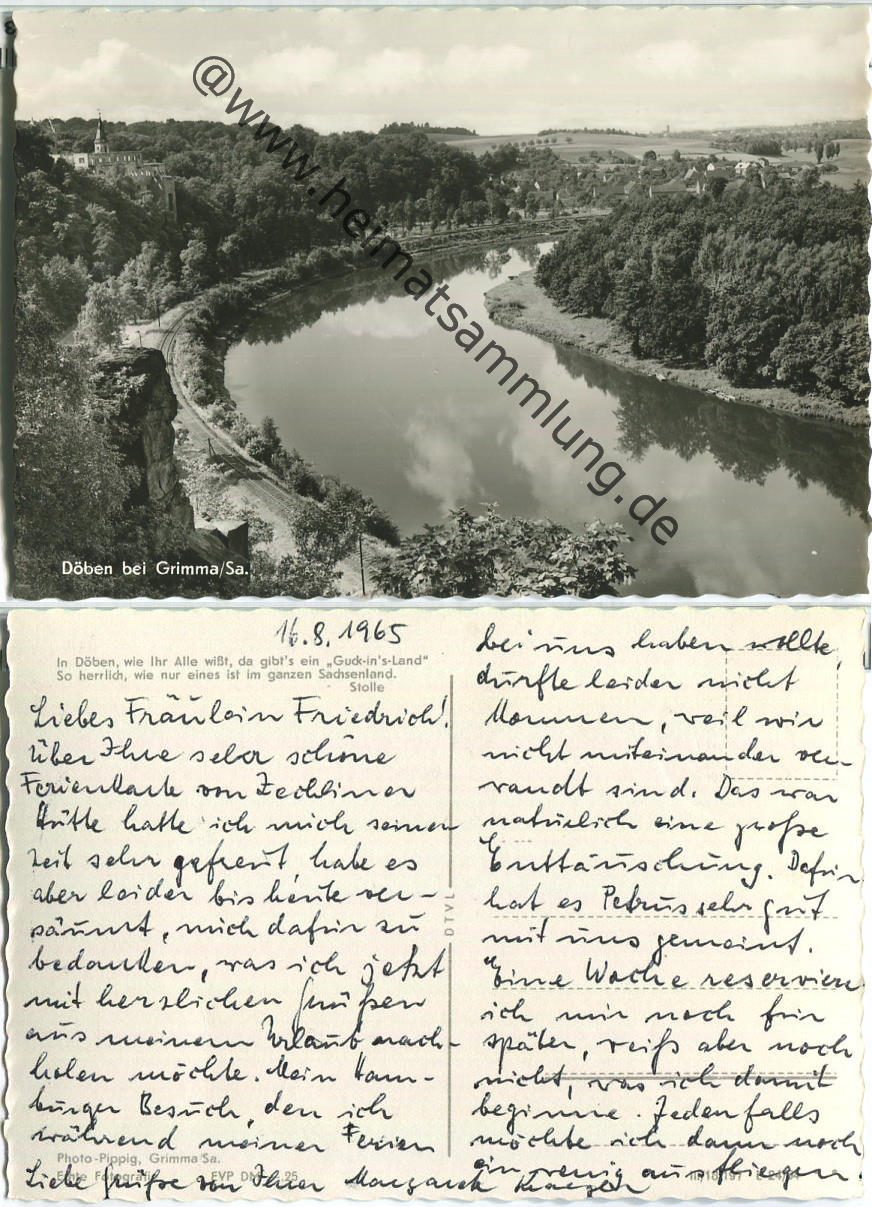 @www.heimatsammlung.de
Döben bei Grimma/Sa.
16.8.1965
In Döben, wie Ihr Alle wißt, da gibt's ein „Guck-in's-Land"
So herrlich, wie nur eines ist im ganzen Sachsenland.
Stolle
Liebes Fräulein Friedrich!
Über Ihre sehr schöne
Ferienkarte von Zechliner
Hütte hatte ich mich seiner
zeit sehr gefreut, habe es
aber leider bis heute ver-
säumt, mich dafür zu
bedanken, was ich jetzt
mit herzlichen Grüßen
aus meinem Urlaub nach-
holen möchte. Mein Ham-
burger Besuch, den ich
während meiner Ferien
bei uns haben wollte,
durfte leider nicht
kommen, weil wir
nicht miteinander ver-
wandt sind. Das war
natürlich eine große
Enttäuschung. Dafür
hat es Petrus sehr gut
mit uns gemeint.
Eine Woche reserviere
ich mir noch für
später, weiß aber noch
nicht, was ich damit
beginne. Jedenfalls
möchte ich dann noch
ein wenig ausfliegen.
Liebe Grüße von Ihrer
DTVL
Photo-Pippig, Grimma/Sa.
Echte Fotografie